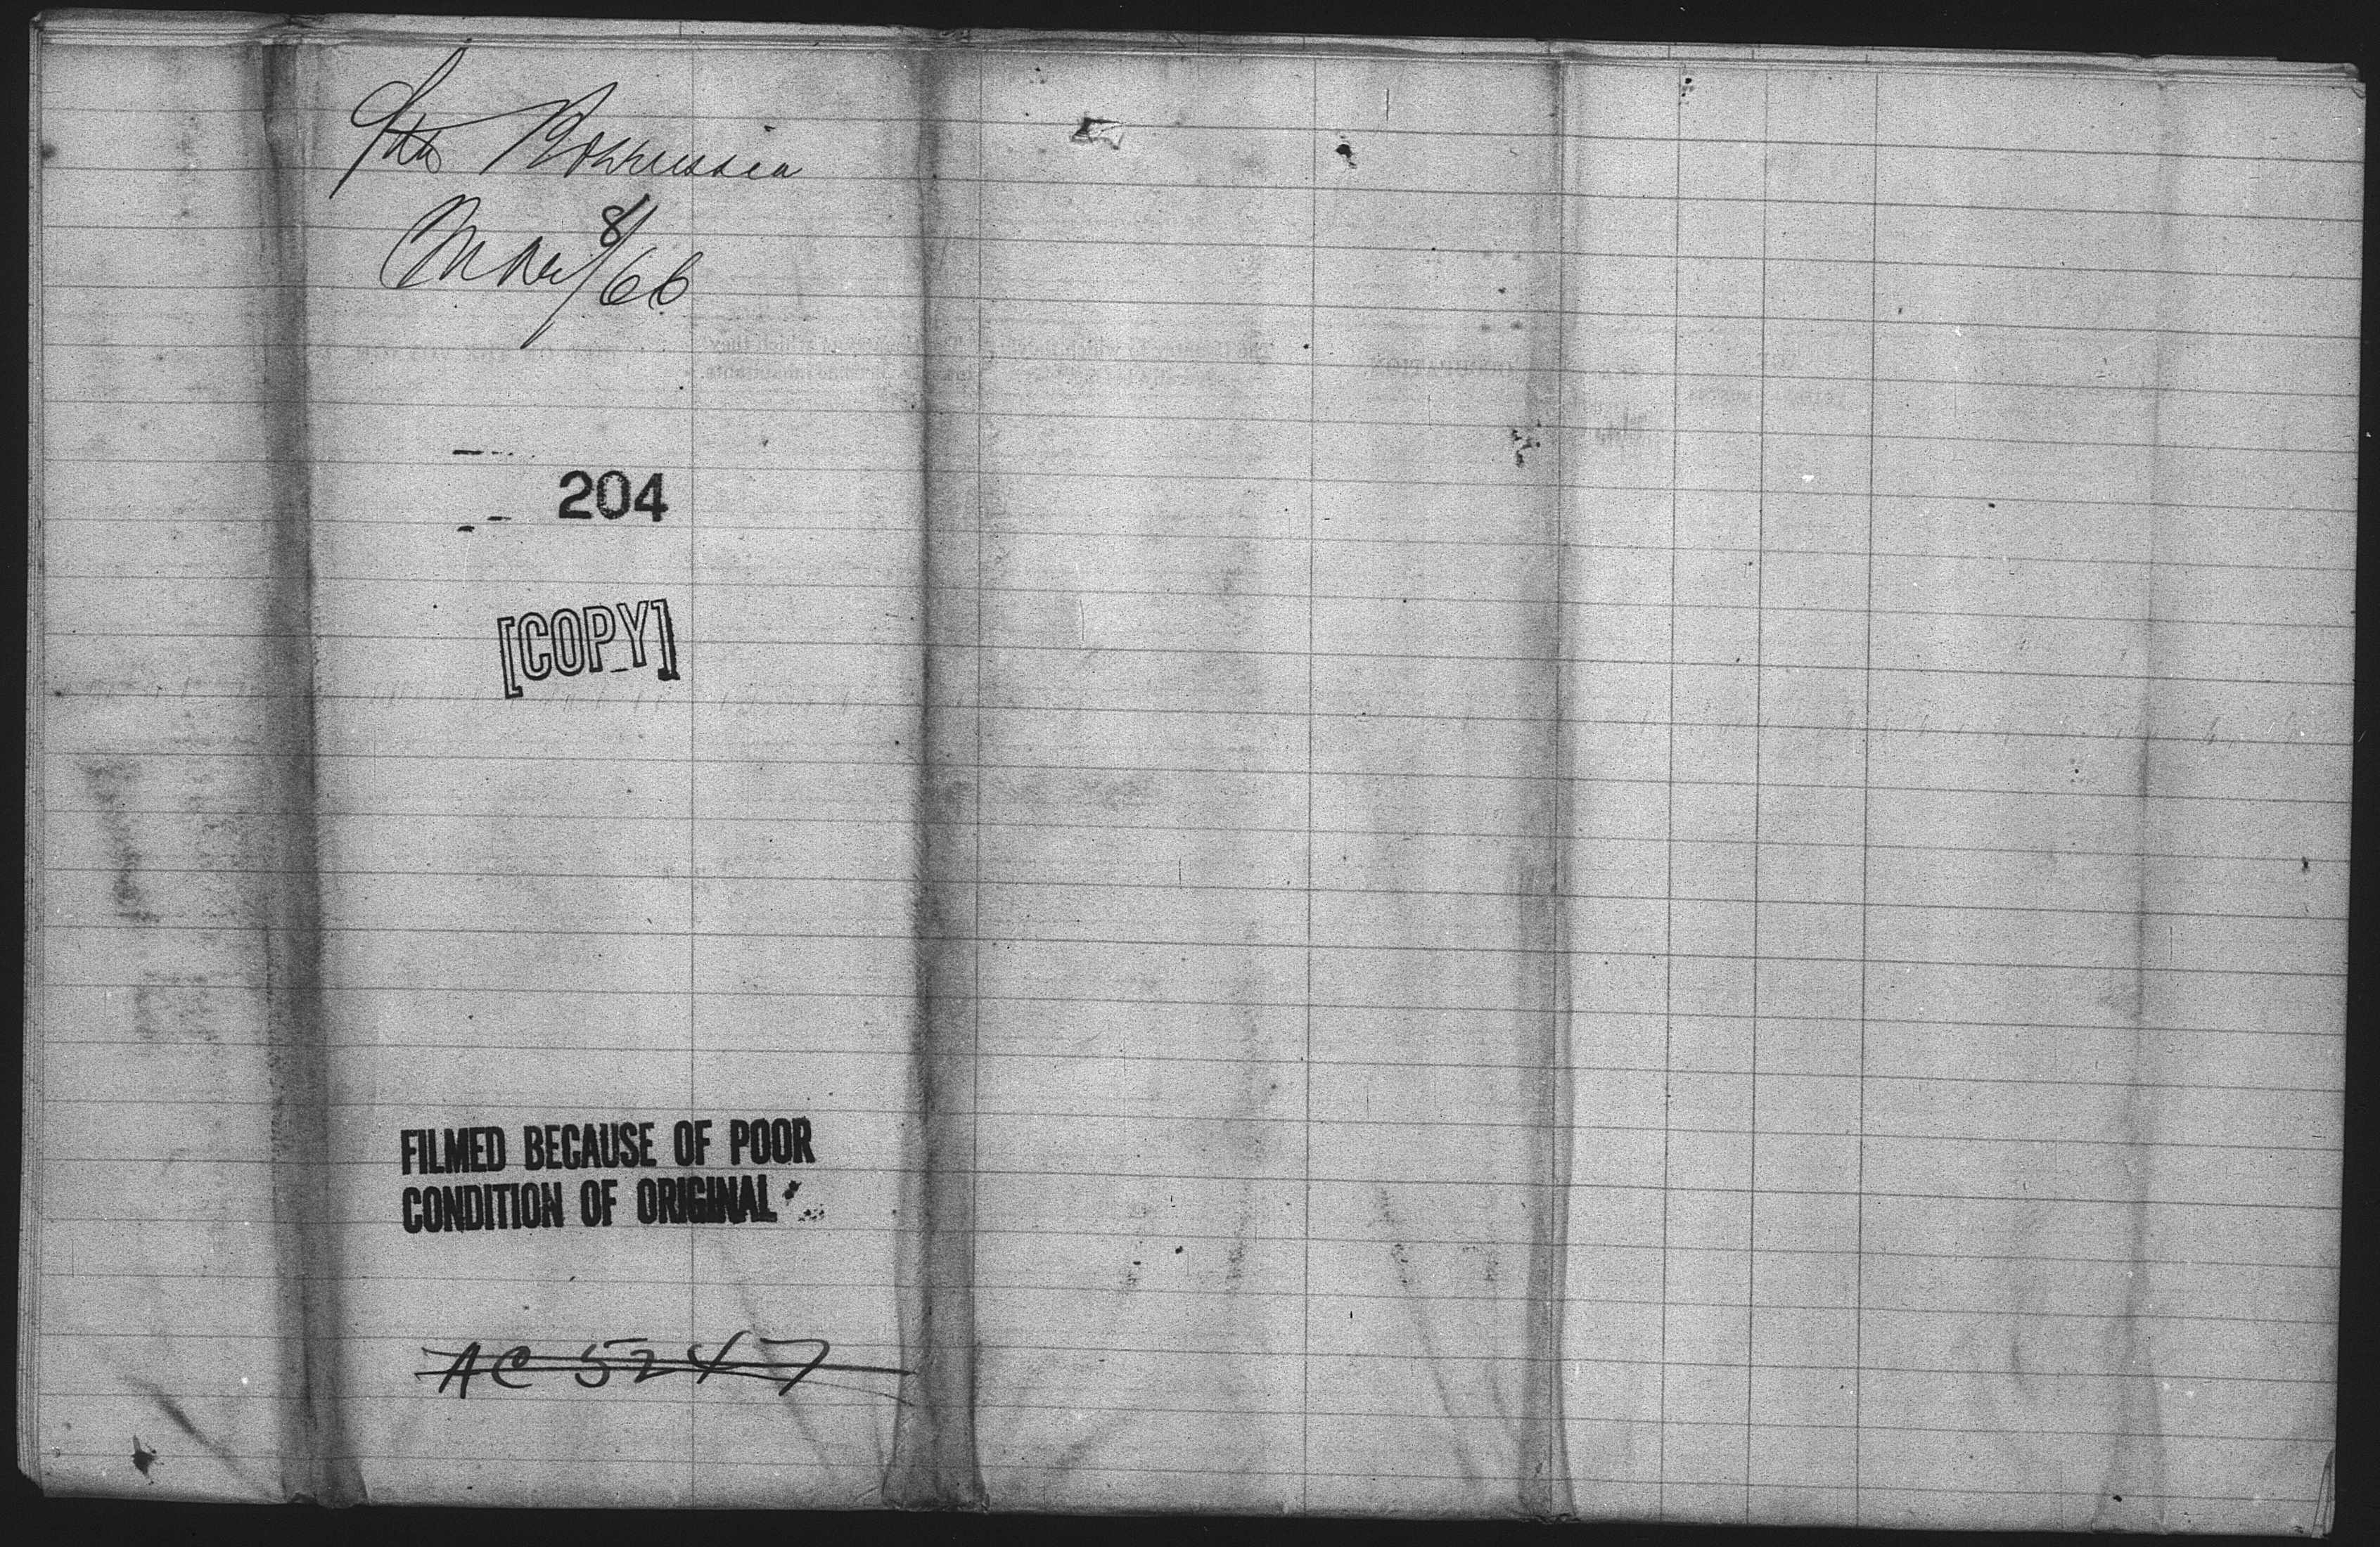 Borussia
May 8/66
204
[COPY]
FILMED BECAUSE OF POOR
CONDITION OF ORIGINAL
AC 5247